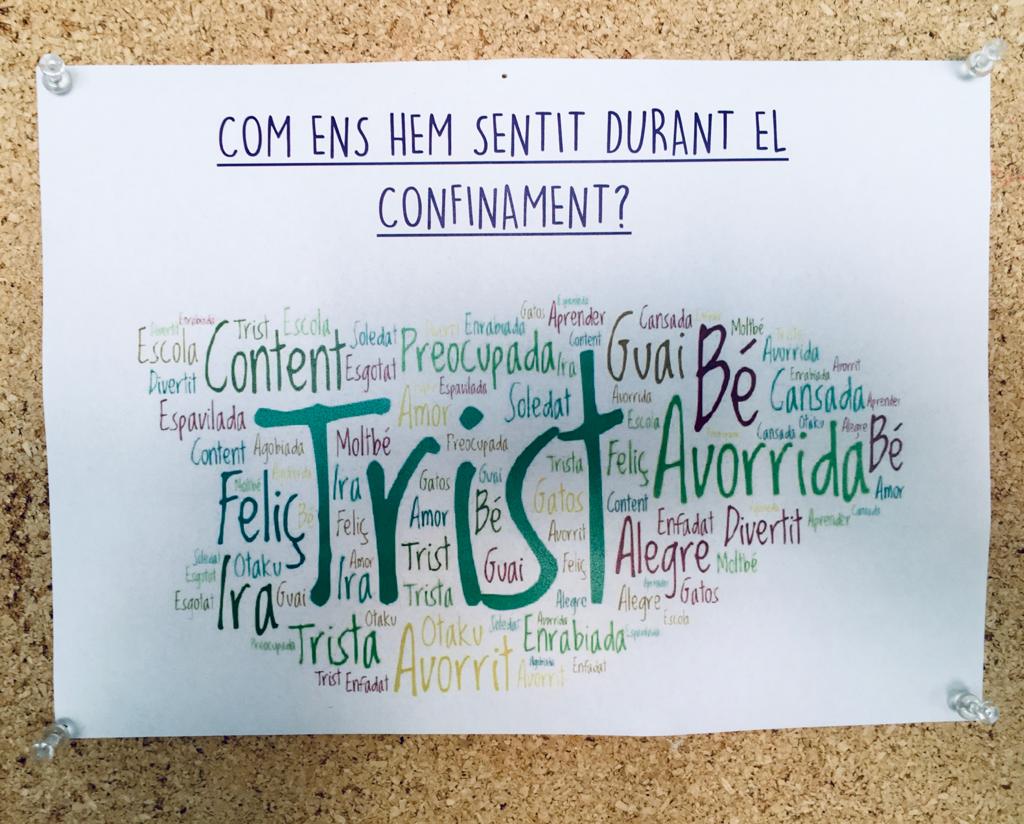 COM ENS HEM SENTIT DURANT EL
CONFINAMENT?
Divertit Enrabiada
Escola Trist Escola Soledat Enrabiada Gatos Aprender Espavilada
Content Esgotat Preocupada Ira Content Guai Cansada Bé Moltbé
Divertit Avorrida Enrabiada Avorrit
Espavilada Amor Espavilada Soledat Avorrida Cansada Aprender
Content Agobiada Moltbé Preocupada Escola Cansada Otaku Alegre Bé
Trist
Feliç Moltbé Bé Ira Gatos Guai Trista Feliç Avorrida Amor
Feliç Amor Bé Gatos Content Enfadat Divertit Aprender Cansada
Avorrit
Soledat Otaku Amor Trist Guai Feliç Alegre Moltbé
Esgotat Ira Ira
Esgolat Guai Trista Alegre Alegre Gatos
Otaku Escola
Preocupada Trista Otaku Soledat Avorrida Enrabiada Espavilada
Avorrit Agobiada Enfadat
Trist Enfadat Avorrit